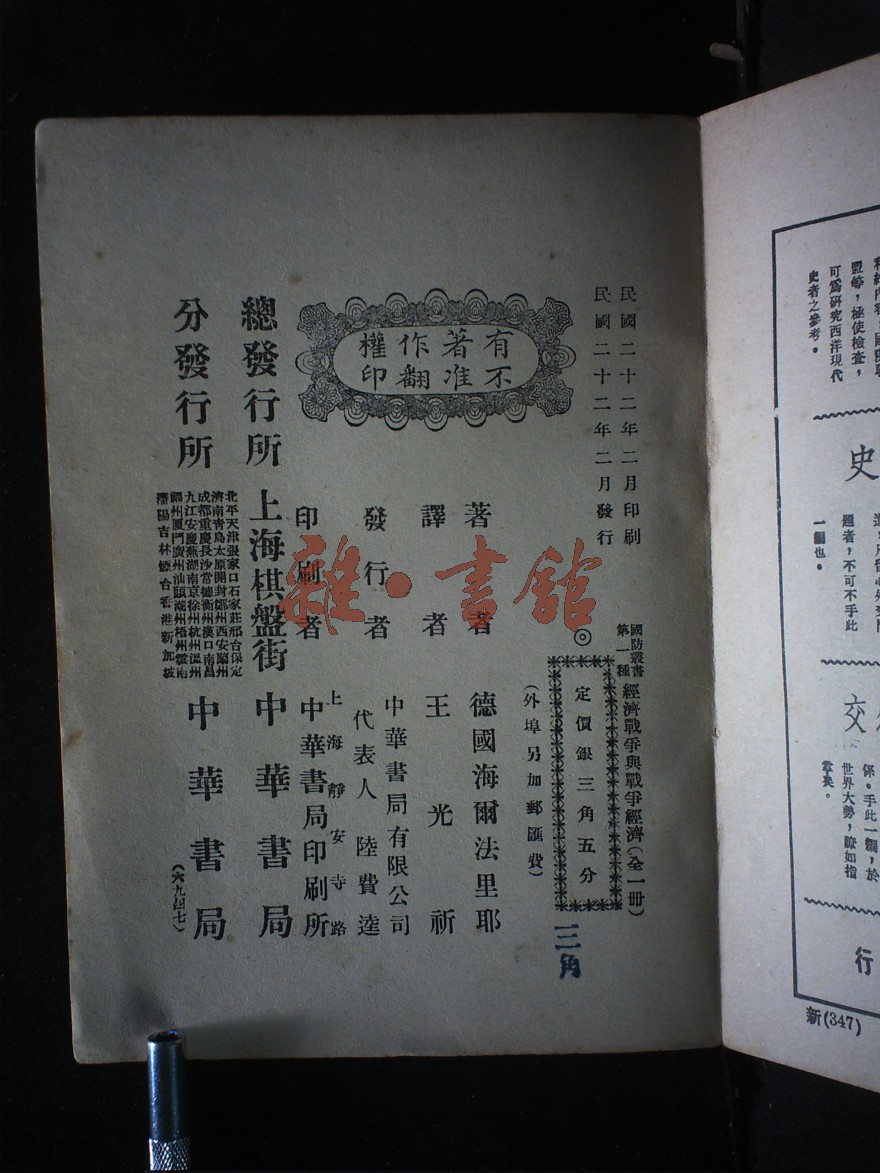 民國二十二年二月印刷
民國二十二年二月發行
國防叢書
第一種
經濟戰爭與戰爭經濟(全一冊)
◎
定價銀三角五分
三角
(外埠另加郵匯費)
有著作權
不准翻印
著者 德國海爾法里耶
譯者 王光祈
發行者 中華書局有限公司
代表人 陸費逵
印刷者 上海靜安寺路
中華書局印刷所
總發行所 上海棋盤街 中華書局
分發行所
北平天津張家口石家莊邢台保定
濟南青島太原開封鄭州西安蘭州
成都重慶長沙常德衡州漢口南昌
九江安慶蕪湖南京徐州杭州溫州
福州廈門廣州汕頭潮州梧州雲南
瀋陽吉林煙台香港新加坡
中華書局
(六九四七)
雜·書館
盟等,極使檢查,
可爲研究西洋現代
史者之參考。
史
題者,不可不手此
一編也。
交
係。手此一編,於
世界大勢,瞭如指
掌矣。
行
新(347)